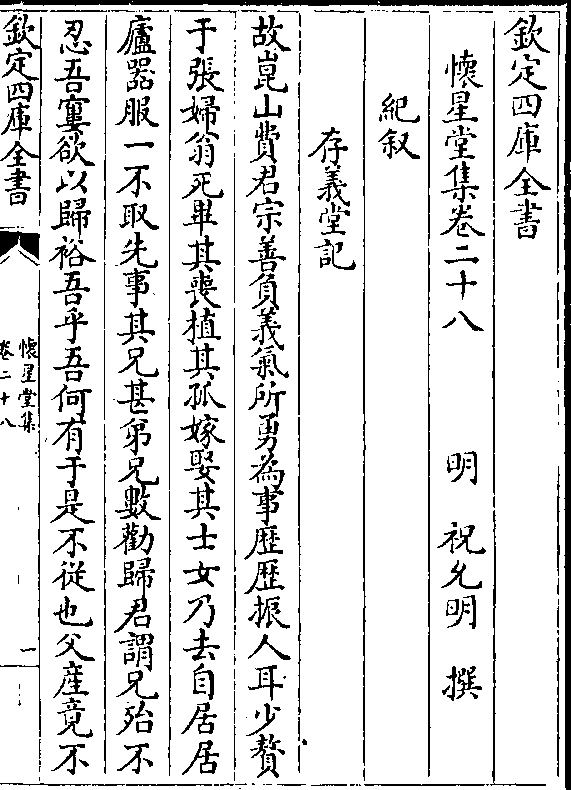 欽定四庫全書
懷星堂集卷二十八
明 祝允明 撰
紀叙
存義堂記
故崑山費君宗善負義氣所勇為事歴歴振人耳少贅
于張婦翁死畢其喪植其孤嫁娶其士女乃去自居居
廬器服一不取先事其兄甚弟兄數勸歸君謂兄殆不
忍吾窶欲以歸裕吾乎吾何有于是不從也父産竟不
欽定四庫全書
懷星堂集
卷二十八
一